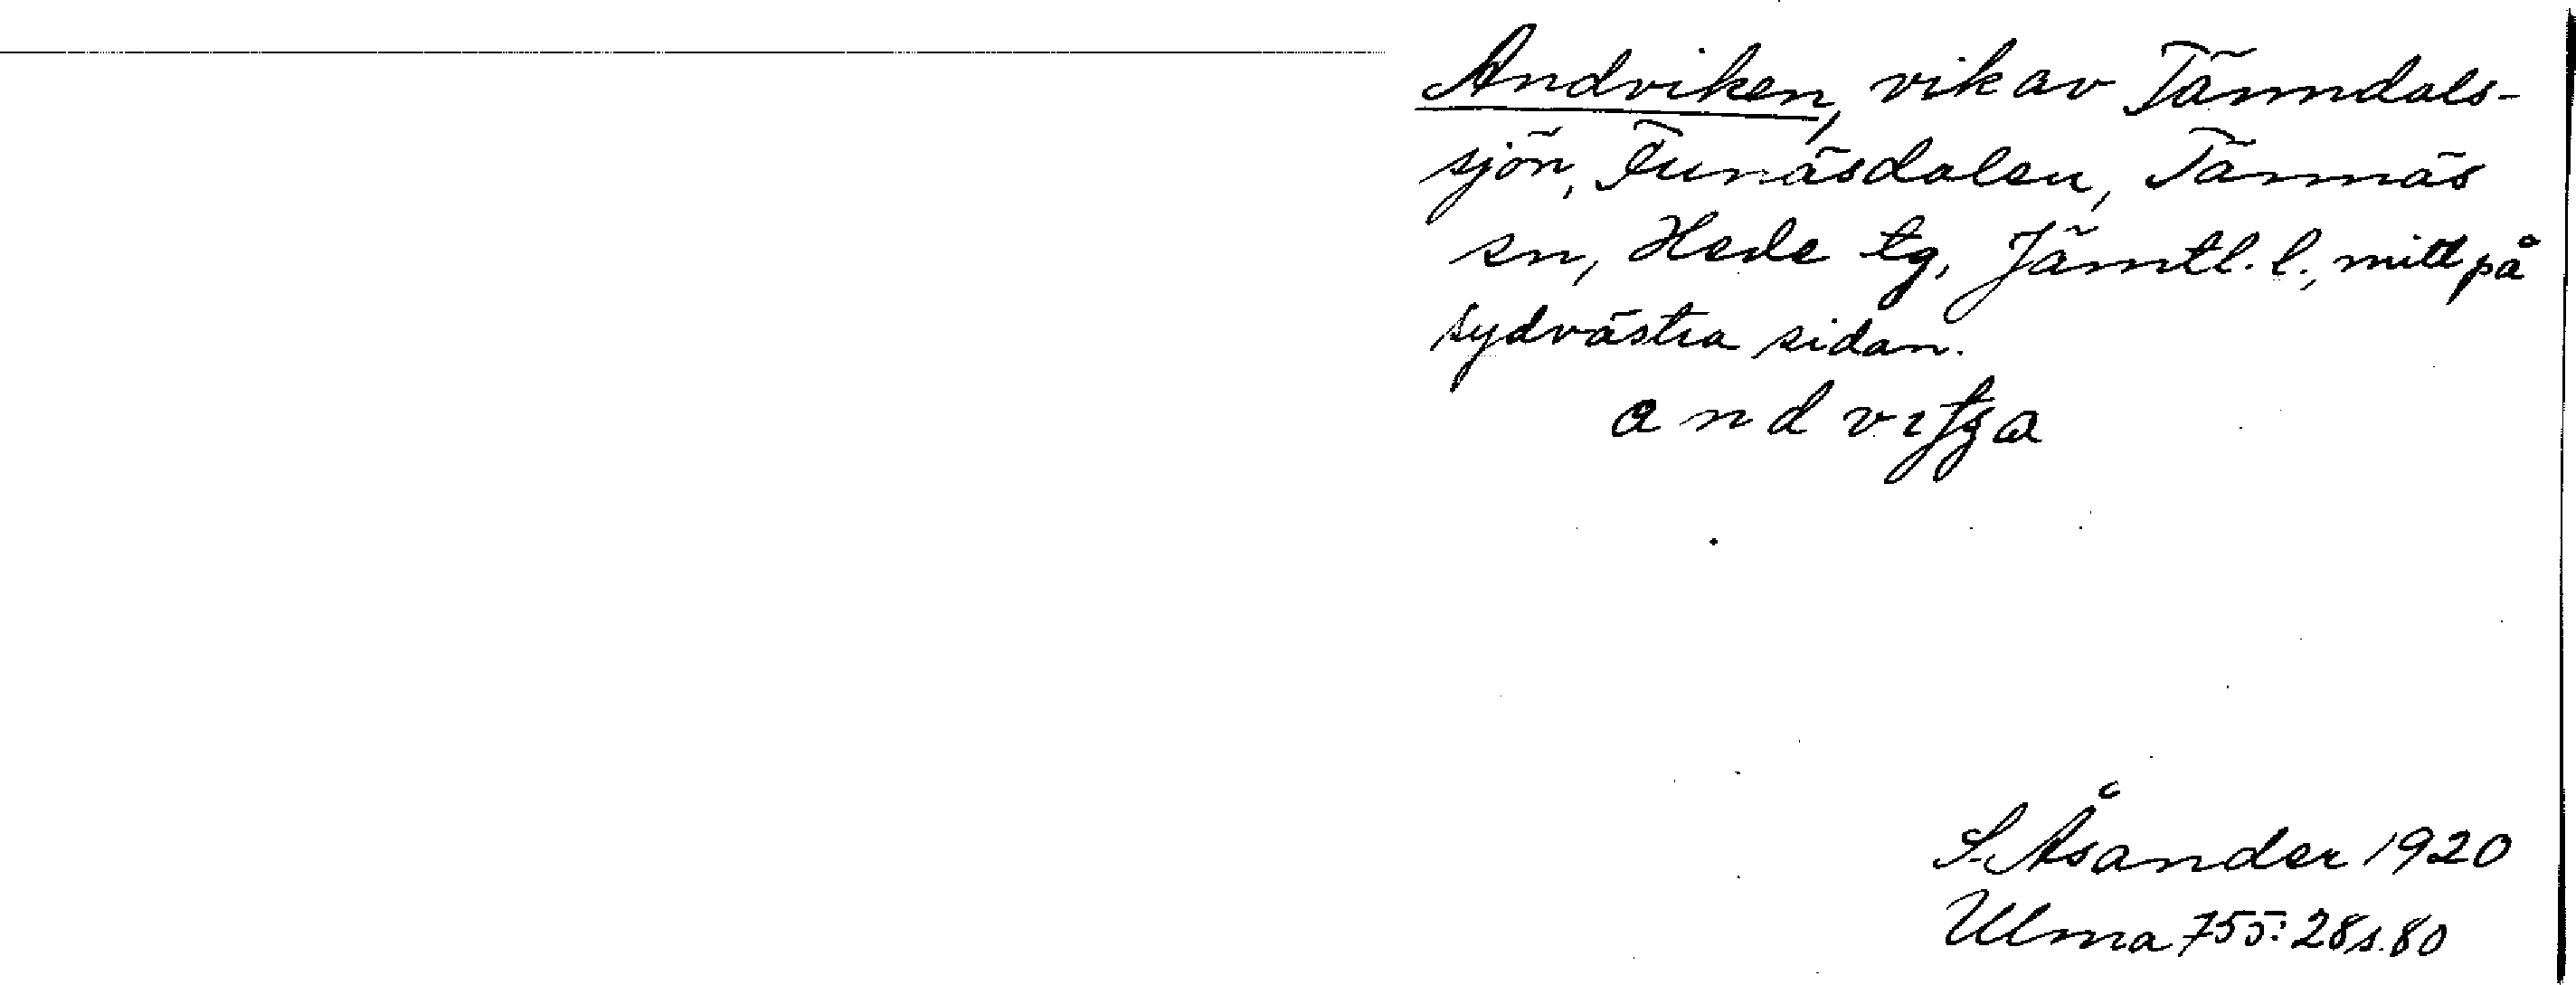 Andviken, vik av Tänndals-
sjön, Funäsdalen, Tännäs
sn, Hede tg, Jämtl. l., mitt på
sydvästra sidan.
S. Åsander 1920
Ulma 755:28 s. 80